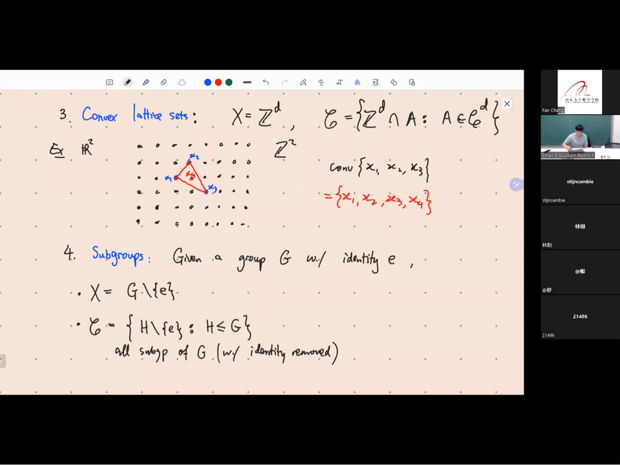 3. Convex lattice sets: X = ℤ^d , 𝒞 = {ℤ^d ∩ A : A ∈ 𝒞^d}
Ex ℝ² ℤ²
x₂
x₁ x₄
x₃
conv {x₁, x₂, x₃}
= {x₁, x₂, x₃, x₄}
4. Subgroups: Given a group G w/ identity e ,
• X = G \ {e}
• 𝒞 = { H\{e} : H ≤ G}
all subgp of G (w/ identity removed)
stijncambie
stijncambie
21496
21496